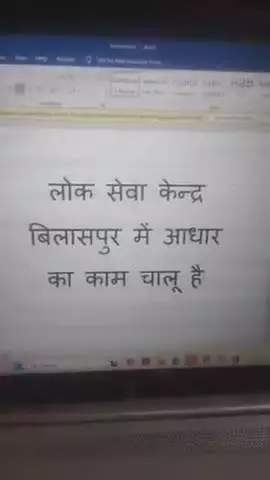 लोक सेवा केन्द्र
बिलासपुर में आधार
का काम चालू है